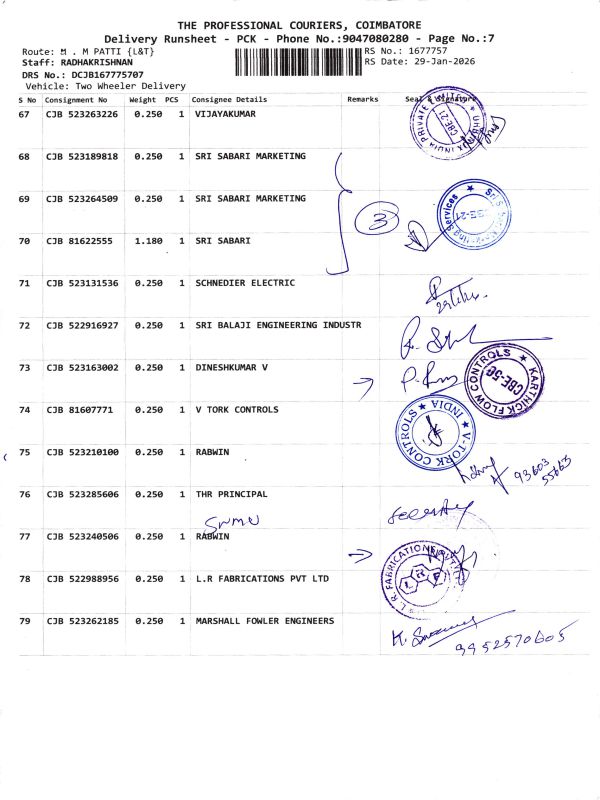 THE PROFESSIONAL COURIERS, COIMBATORE
Delivery Runsheet - PCK - Phone No.:9047080280 - Page No.:7
Route: M . M PATTI {L&T} RS No.: 1677757
Staff: RADHAKRISHNAN RS Date: 29-Jan-2026
DRS No.: DCJB167775707
Vehicle: Two Wheeler Delivery
S No Consignment No Weight PCS Consignee Details Remarks Seal & Signature
67 CJB 523263226 0.250 1 VIJAYAKUMAR
68 CJB 523189818 0.250 1 SRI SABARI MARKETING
69 CJB 523264509 0.250 1 SRI SABARI MARKETING
3
70 CJB 81622555 1.180 1 SRI SABARI
71 CJB 523131536 0.250 1 SCHNEDIER ELECTRIC
72 CJB 522916927 0.250 1 SRI BALAJI ENGINEERING INDUSTR
73 CJB 523163002 0.250 1 DINESHKUMAR V
KARTHICK FLOW CONTROLS ★ CBE-50
74 CJB 81607771 0.250 1 V TORK CONTROLS
★ V-TORK CONTROLS ★ INDIA
75 CJB 523210100 0.250 1 RABWIN
93603
55663
76 CJB 523285606 0.250 1 THR PRINCIPAL
77 CJB 523240506 0.250 1 RABWIN
L.R. FABRICATIONS
L R F
78 CJB 522988956 0.250 1 L.R FABRICATIONS PVT LTD
79 CJB 523262185 0.250 1 MARSHALL FOWLER ENGINEERS
9952570605